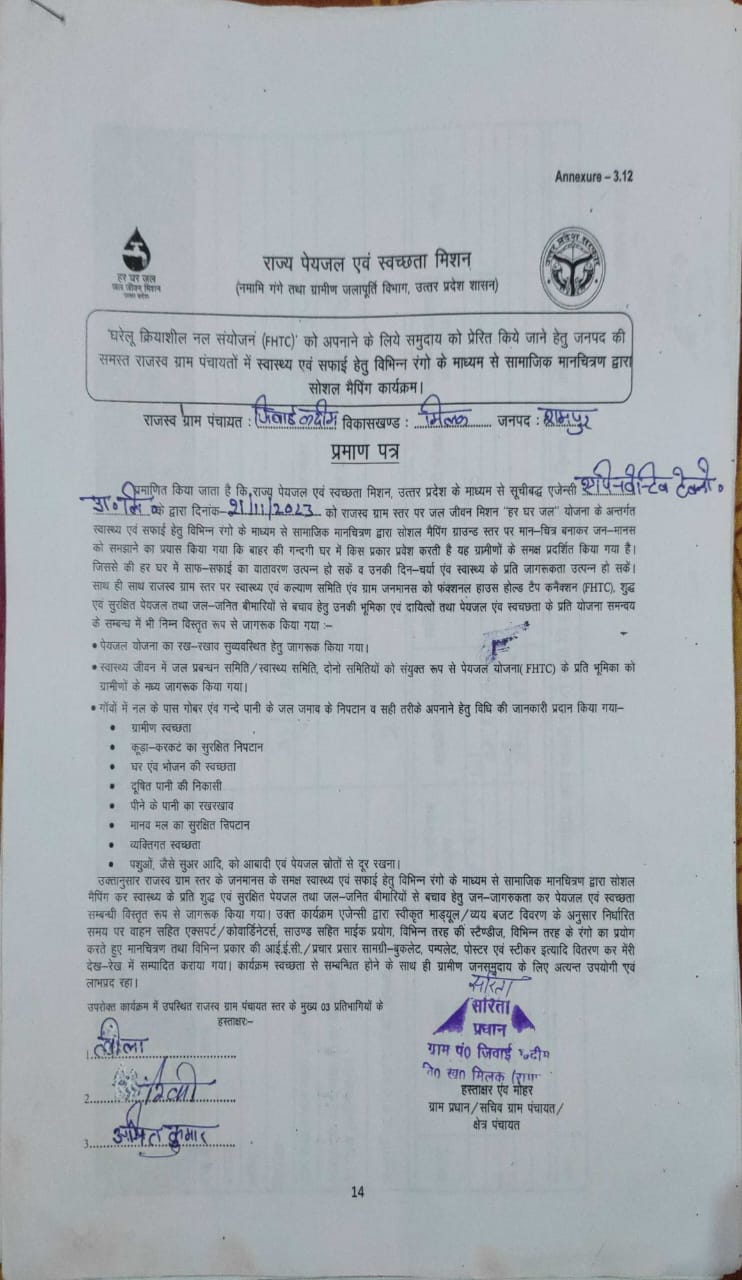 Annexure – 3.12
हर घर जल
जल जीवन मिशन
उत्तर प्रदेश
राज्य पेयजल एवं स्वच्छता मिशन
(नमामि गंगे तथा ग्रामीण जलापूर्ति विभाग, उत्तर प्रदेश शासन)
उत्तर प्रदेश सरकार
'घरेलू क्रियाशील नल संयोजनं (FHTC)' को अपनाने के लिये समुदाय को प्रेरित किये जाने हेतु जनपद की
समस्त राजस्व ग्राम पंचायतों में स्वास्थ्य एवं सफाई हेतु विभिन्न रंगो के माध्यम से सामाजिक मानचित्रण द्वारा
सोशल मैपिंग कार्यक्रम।
राजस्व ग्राम पंचायत : जिवाई कदीम विकासखण्ड : मिलक जनपद : रामपुर
प्रमाण पत्र
प्रमाणित किया जाता है कि राज्य पेयजल एवं स्वच्छता मिशन, उत्तर प्रदेश के माध्यम से सूचीबद्ध एजेन्सी
प्रा॰ लि॰ के द्वारा दिनांक– 21/11/2023 को राजस्व ग्राम स्तर पर जल जीवन मिशन "हर घर जल" योजना के अन्तर्गत
स्वास्थ्य एवं सफाई हेतु विभिन्न रंगो के माध्यम से सामाजिक मानचित्रण द्वारा सोशल मैपिंग ग्राउन्ड स्तर पर मान–चित्र बनाकर जन–मानस
को समझाने का प्रयास किया गया कि बाहर की गन्दगी घर में किस प्रकार प्रवेश करती है यह ग्रामीणों के समक्ष प्रदर्शित किया गया है।
जिससे की हर घर में साफ–सफाई का वातावरण उत्पन्न हो सकें व उनकी दिन–चर्या एंव स्वास्थ्य के प्रति जागरूकता उत्पन्न हो सकें।
साथ ही साथ राजस्व ग्राम स्तर पर स्वास्थ्य एवं कल्याण समिति एंव ग्राम जनमानस को फंक्शनल हाउस होल्ड टैप कनैक्शन (FHTC), शुद्ध
एवं सुरक्षित पेयजल तथा जल–जनित बीमारियों से बचाव हेतु उनकी भूमिका एवं दायित्वों तथा पेयजल एंव स्वच्छता के प्रति योजना समन्वय
के सम्बन्ध में भी निम्न विस्तृत रूप से जागरूक किया गया :–
• पेयजल योजना का रख–रखाव सुव्यवस्थित हेतु जागरूक किया गया।
• स्वास्थ्य जीवन में जल प्रबन्धन समिति/स्वास्थ्य समिति, दोनो समितियों को संयुक्त रूप से पेयजल योजना( FHTC) के प्रति भूमिका को
ग्रामीणों के मध्य जागरूक किया गया।
• गॉवों में नल के पास गोबर एंव गन्दे पानी के जल जमाव के निपटान व सही तरीके अपनाने हेतु विधि की जानकारी प्रदान किया गया–
• ग्रामीण स्वच्छता
• कूड़ा–करकट का सुरक्षित निपटान
• घर एंव भोजन की स्वच्छता
• दूषित पानी की निकासी
• पीने के पानी का रखरखाव
• मानव मल का सुरक्षित निपटान
• व्यक्तिगत स्वच्छता
• पशुओं, जैसे सुअर आदि, को आबादी एवं पेयजल स्रोतों से दूर रखना।
उक्तानुसार राजस्व ग्राम स्तर के जनमानस के समक्ष स्वास्थ्य एवं सफाई हेतु विभिन्न रंगो के माध्यम से सामाजिक मानचित्रण द्वारा सोशल
मैपिंग कर स्वास्थ्य के प्रति शुद्ध एवं सुरक्षित पेयजल तथा जल–जनित बीमारियों से बचाव हेतु जन–जागरुकता कर पेयजल एवं स्वच्छता
सम्बन्धी विस्तृत रूप से जागरूक किया गया। उक्त कार्यक्रम एजेन्सी द्वारा स्वीकृत माड्यूल/व्यय बजट विवरण के अनुसार निर्धारित
समय पर वाहन सहित एक्सपर्ट/कोवार्डिनेटर्स, साउण्ड सहित माईक प्रयोग, विभिन्न तरह की स्टैण्डीज, विभिन्न तरह के रंगों का प्रयोग
करते हुए मानचित्रण तथा विभिन्न प्रकार की आई.ई.सी./प्रचार प्रसार सामग्री–बुकलेट, पम्पलेट, पोस्टर एवं स्टीकर इत्यादि वितरण कर मेरी
देख–रेख में सम्पादित कराया गया। कार्यक्रम स्वच्छता से सम्बन्धित होने के साथ ही ग्रामीण जनसमुदाय के लिए अत्यन्त उपयोगी एवं
लाभप्रद रहा।
सरिता
उपरोक्त कार्यक्रम में उपस्थित राजस्व ग्राम पंचायत स्तर के मुख्य 03 प्रतिभागियों के
हस्ताक्षरः–
सरिता
प्रधान
ग्राम पं0 जिवाई कदीम
वि0 ख0 मिलक
1. लीला
2.
3. अमित कुमार
हस्ताक्षर एंव मोहर
ग्राम प्रधान/सचिव ग्राम पंचायत/
क्षेत्र पंचायत
14